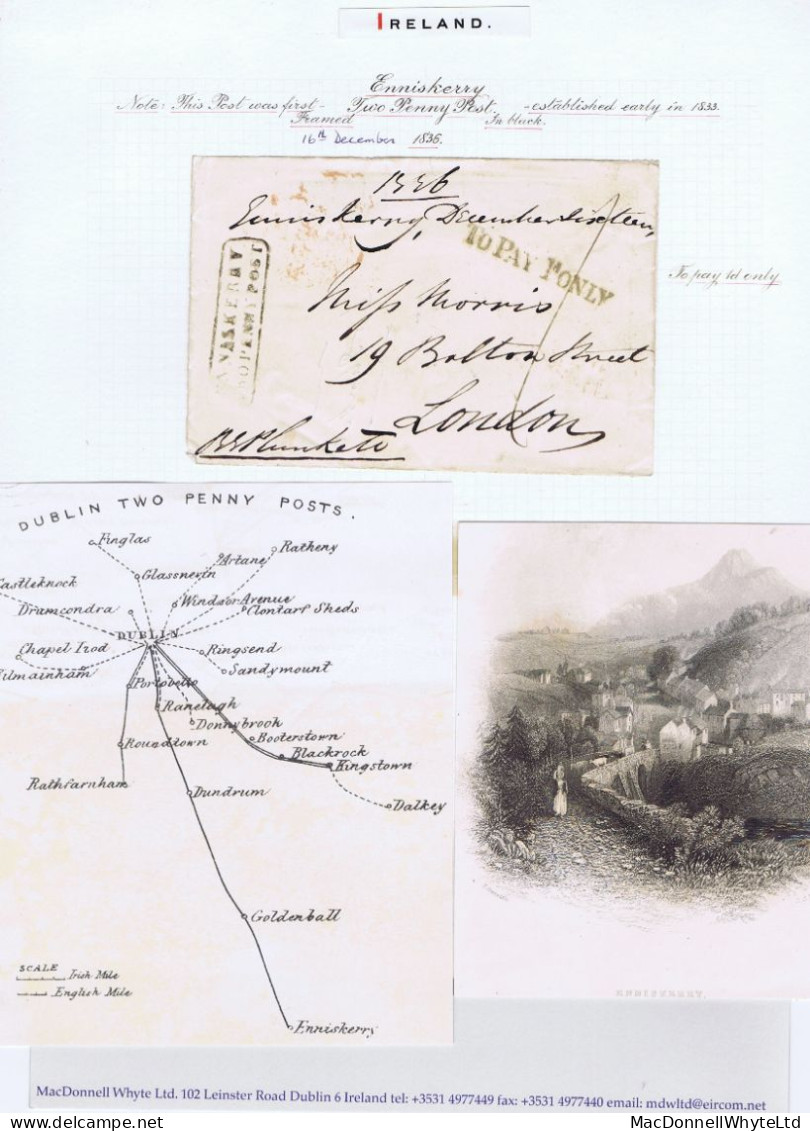 IRELAND.
Enniskerry
Note: This Post was first - Two Penny Post. - established early in 1833.
Framed In black.
16th December 1836.
1836
Enniskerry, December Sixteen,
TO PAY 1D ONLY
NNASKERRY
WOPENNY POST
To pay 1d only
Miss Morris
19 Bolton Street
London
DUBLIN TWO PENNY POSTS.
Finglas
Artane
Ratheny
Glassnevin
Castleknock
Windsor Avenue
Dramcondra
Clontarf Sheds
DUBLIN
Chapel Izod
Ringsend
Kilmainham
Sandymount
Portobello
Ranelagh
Donnybrook
Booterstown
Roundtown
Blackrock
Kingstown
Rathfarnham
Dundrum
Dalkey
Goldenball
SCALE
Irish Mile
English Mile
Enniskerry
ENNISKERRY.
MacDonnell Whyte Ltd. 102 Leinster Road Dublin 6 Ireland tel: +3531 4977449 fax: +3531 4977440 email: mdwltd@eircom.net
©MacDonnellWhyteLtd